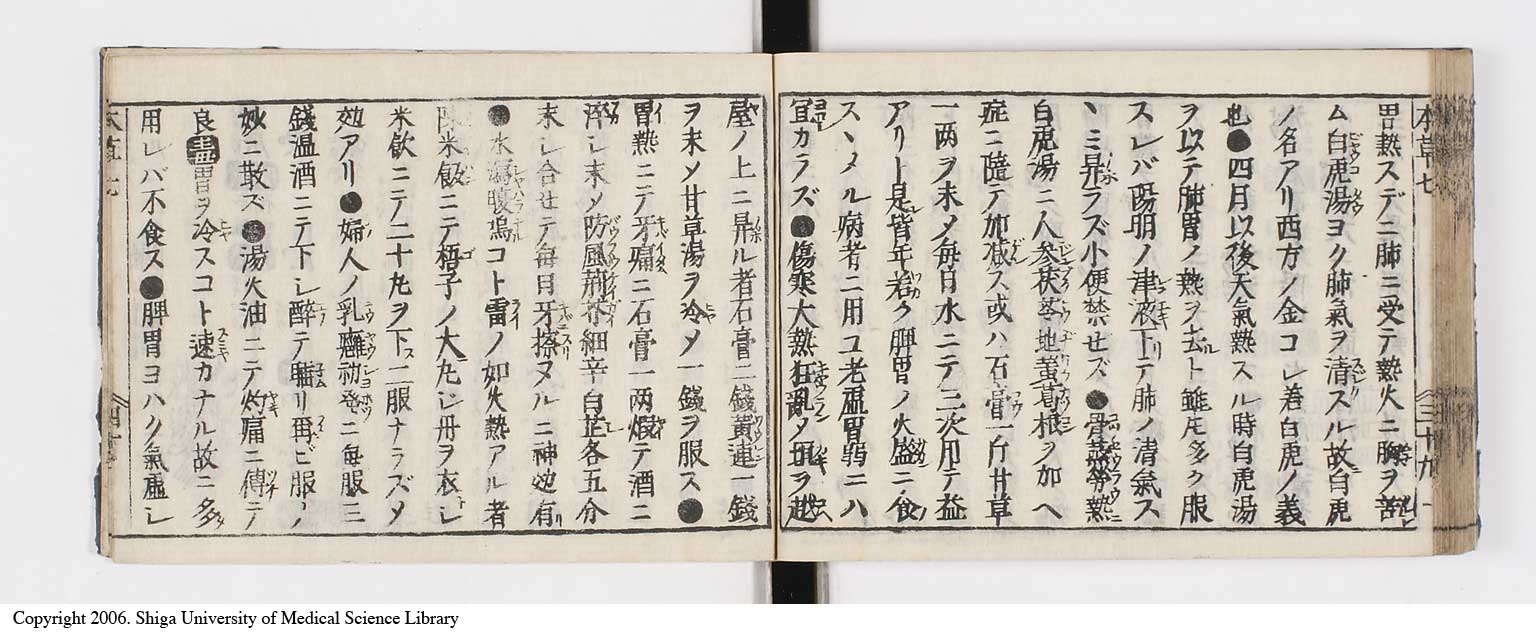 本草七 三十九
胃熱スデニ肺ニ受テ熱火ニ胸ヲ苦
ム白虎湯ヨク肺氣ヲ清スル故ニ白虎
ノ名アリ西方ノ金コレ着白虎ノ義
也●四月以後天氣熱スル時白虎湯
ヲ以テ肺胃ノ熱ヲ去ト雖𪜈多ク服
スレバ陽明ノ津液下リテ肺ノ清氣ス
ヽミ昇ラズ小便禁せズ●骨蒸勞熱
白虎湯ニ人參茯苓地黄葛根ヲ加ヘ
症ニ隨テ加减ス或ハ石膏一斤甘草
一两ヲ末メ毎日水ニテ三次用テ益
アリト是皆年若ク脾胃ノ火盛ニ食
スヽメル病者ニ用ユ老虚胃弱ニハ
宜カラズ●傷寒大熱狂乱メ垣ヲ越
屋ノ上ニ昇ル者石膏二錢黄連一錢
ヲ末メ甘草湯ヲ冷メ一錢ヲ服ス●
胃熱ニテ牙痛ニ石膏一两煆テ酒ニ
淬レ末メ防風荊芥細辛白芷各五分
末レ合せテ毎日牙搽ヌルニ神効有
●水瀉腹鳴コト雷ノ如火熱アル者
陳米飯ニテ梧子ノ大丸じ丹ヲ衣レ
米飲ニテ二十丸ヲ下ス二服ナラズメ
効アリ●婦人ノ乳癰初發ニ毎服三
錢温酒ニテ下レ醉テ睡リ再ビ服メ
妙ニ散ズ●湯火油ニテ灼痛ニ傅テ
良 胃ヲ冷スコト速カナル故ニ多
用レバ不食ス●脾胃ヨハク氣虚レ
本草七
Copyright 2006. Shiga University of Medical Science Library